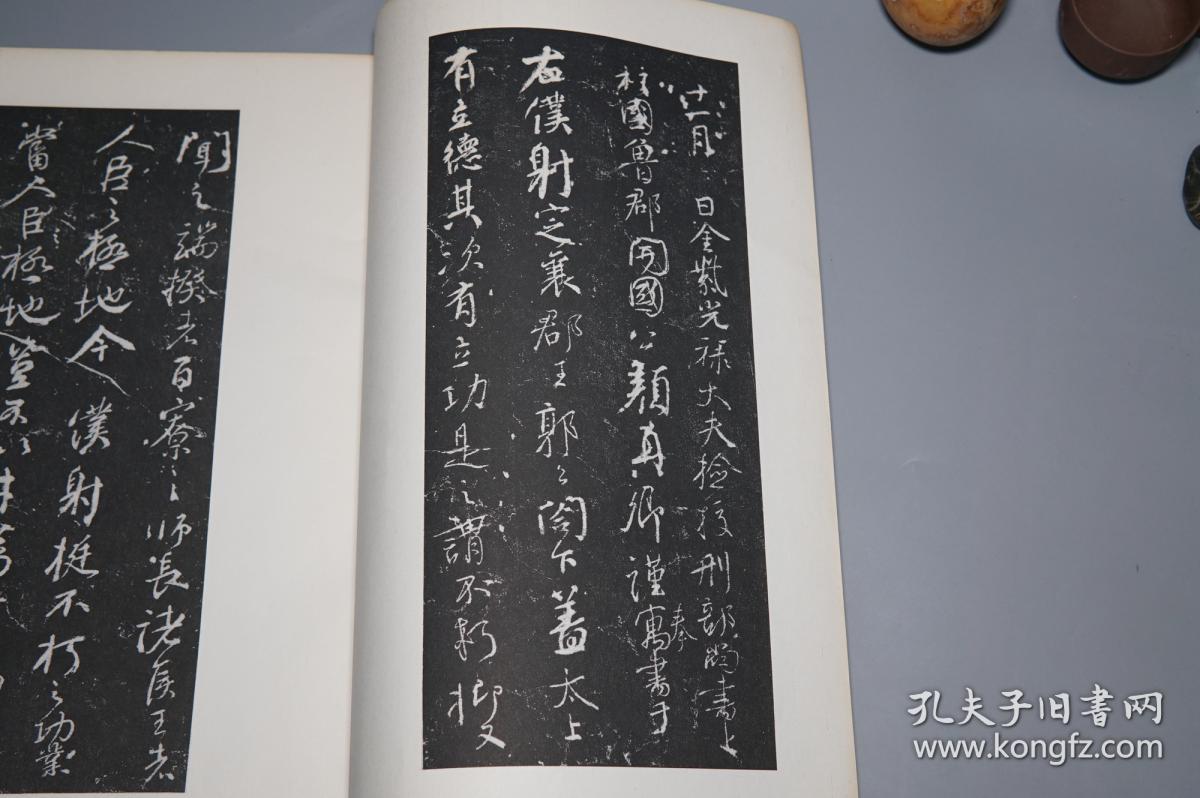 十一月 日金紫光祿大夫檢校刑部尚書上
柱國魯郡開國公顏真卿謹奉寓書于
右僕射定襄郡王郭公閤下蓋太上
有立德其次有立功是之謂不朽抑又
聞之端揆者百寮之師長諸侯王者
人臣之極地今僕射挺不朽之功業
當人臣極地豈不以才
孔夫子旧书网
www.kongfz.com